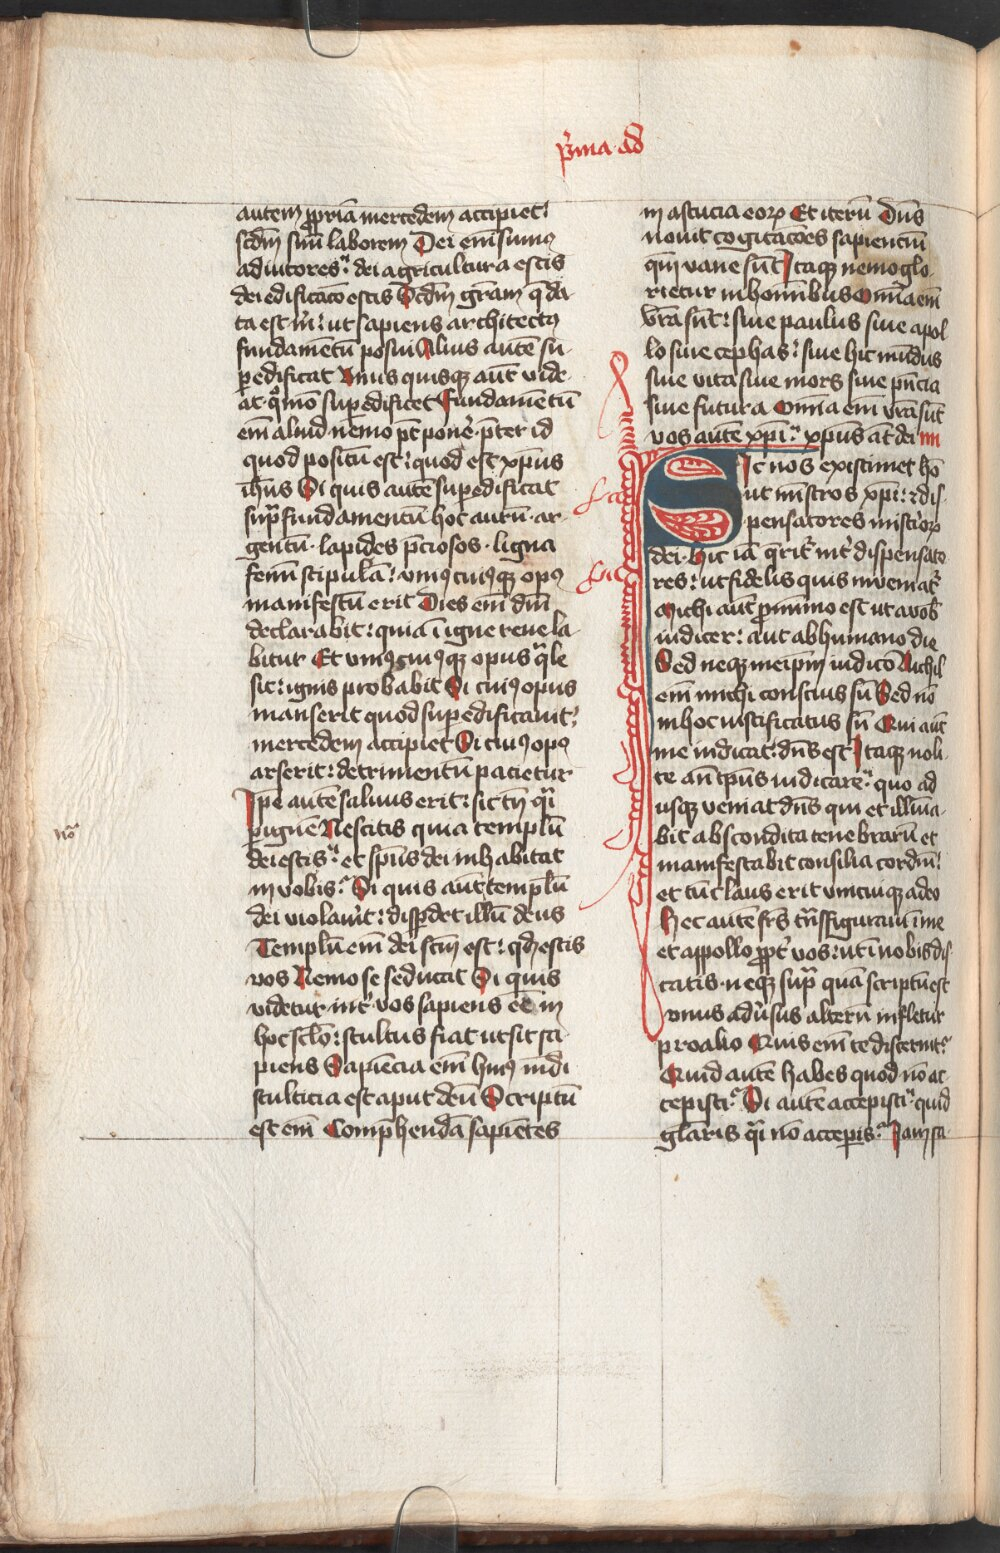 p̄ma ad
autem ꝓpriā mercedem accipiet:
scdm̄ suū laborem Dei em̄ sumus
adiutores: dei agricultura estis
dei edificacō estis Scdm̄ grām q̄ da
ta est m̄: ut sapiens architectꝰ
fundamētū posui Alius autē su-
ꝑedificat Unus quisqꝫ aūt vide-
at qͦmō suꝑedificet Fundamētū
em̄ aliud nemo pt̄ ponē̄ p̄ter id
quod positū est: quod est xpūs
ih̄us Si quis autē suꝑedificat
sup̄ fundamentū hoc aurū · ar-
gentū · lapides p̄ciosos · ligna
fenū stipulā: vniꝰcuiꝰqꝫ opꝰ
manifestū erit Dies em̄ dm̄
declarabit: quia ī igne reuela
bitur Et vniꝰcuiꝰqꝫ opus q̄le
sit: ignis probabit Si cuiꝰ opus
manserit quod suꝑedificauit:
mercedem accipiet Si cuiꝰ opꝰ
arserit: detrimentū pacietur
Ipē autē saluus erit: sic tn̄ q̄i
ꝑ ignē Nescitis quia templū
dei estis: et spūs dei inhabitat
in vobis: Si quis aūt templū
dei violauīt: disꝑdet illū deus
Templū em̄ dei scm̄ est: qd̄ estis
vos Nemo se seducat Si quis
videtur int̄ vos sapiens eē in
hoc sclō: stultus fiat ut sit sa-
piens Sapiēcia em̄ huiꝰ mūdi
stulticia est aput deū Scriptū
est em̄ Comp̄hendā sapiētes
in astucia eoꝝ Et iterū Dn̄s
nouit cogitacōes sapientiū
qm̄ vane sūt Itaqꝫ nemo glo-
rietur in hominibus Om̄ia em̄
vr̄a sūt: siue paulus siue apol
lo siue cephas: siue hic mūdus
siue vita siue mors siue p̄ncia
siue futura Om̄ia em̄ vr̄a sūt
vos autē xp̄i: xpūs āt dei IIII
Sic nos existimet hō
ut mīstros xp̄i: ⁊ dis-
pensatores mistioꝝ
dei · hic iā q̄rit̄ int̄ dispensato
res: ut fidelis quis inueniat̄
Michi aūt ꝓ minimo est ut a vob̄
iudicer: aut ab humano die
Sed neqꝫ meipm̄ iudico Nichil
em̄ michi conscius sū Sed nō
in hoc iustificatus sū Qui aūt
me iudicat: dn̄s est Itaqꝫ noli-
te ān tp̄us iudicare: quo ad
usqꝫ veniat dn̄s qui et illūīa-
bit abscondita tenebrarū et
manifestabit consilia cordiū:
et tūc laus erit vnicuiqꝫ a deo
Hec autē frs̄ trn̄sfiguraui ī me
et appollo ꝓpt̄ vos: ut ī nobis dis-
catis · neqꝫ sup̄ quā scriptū est
vnus adūsus alterū infletur
pro alio Quis em̄ te discernit:
Quid autē habes quod nō ac-
cepisti: Si autē accepisti: quid
glāris q̄i nō acceperis: Iam sa-
nō